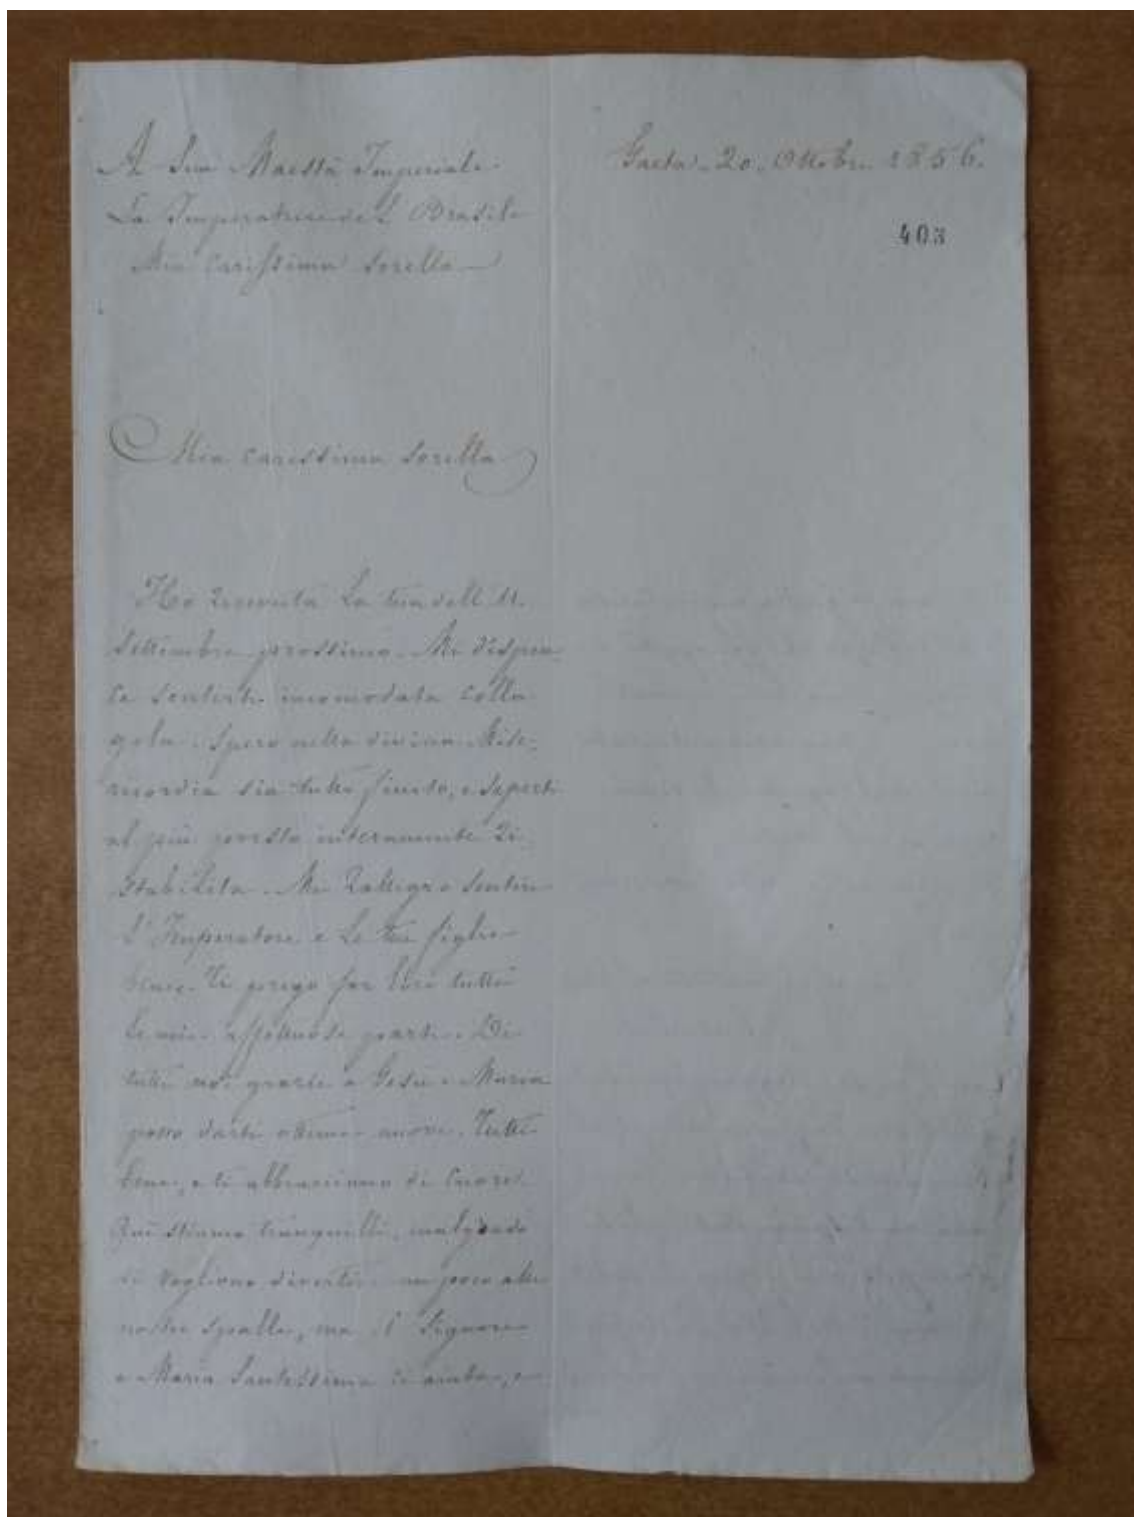 A Sua Maestà Imperiale
La Imperatrice del Brasile
Mia carissima Sorella
Gaeta. 20. Ottobre 1856.
403
Mia carissima Sorella
Ho ricevuta La tua dell 11.
Settembre prossimo. Mi dispia
ce sentirti incomodata colla
gola. Spero nella divina Mise,
ricordia sia tutto finito, e saperti
al più presto interamente ri
stabilita. Mi rallegro sentire
L'Imperatore e Le tue figlie
bene. Ti prego far loro tutte
le mie affettuose parti. Di
tutti noi grazie a Gesù e Maria
posso darti ottime nuove. Tutti
bene, e ti abbracciamo di cuore.
Qui stiamo tranquilli, malgrado
si vogliono divertire un poco alle
nostre spalle, ma il Signore
e Maria Santissima ci aiuta, e